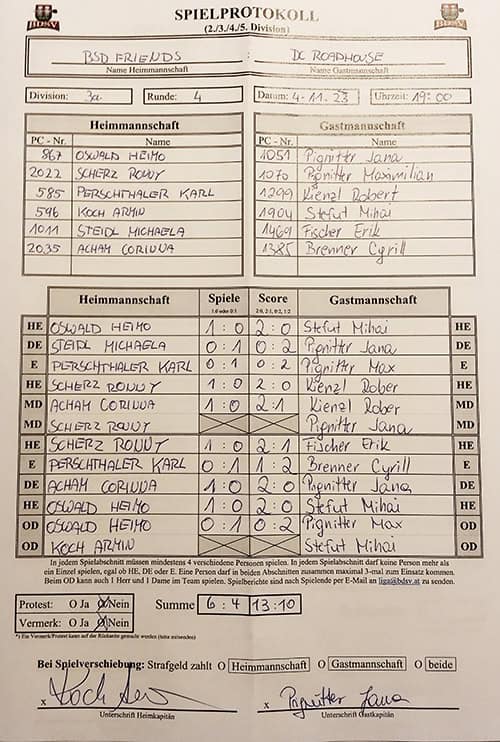 SPIELPROTOKOLL
(2./3./4./5. Division)
BDSV BDSV
BSD FRIENDS DC ROADHOUSE
Name Heimmannschaft Name Gastmannschaft
Division: 3a Runde: 4 Datum: 4-11-23 Uhrzeit: 19:00
Heimmannschaft Gastmannschaft
PC - Nr. Name PC - Nr. Name
867 OSWALD HEIMO 1051 Pignitter Jana
2022 SCHERZ RONNY 1070 Pignitter Maximilian
585 PERSCHTHALER KARL 1299 Kienzl Robert
596 KOCH ARMIN 1904 Stefut Mihai
1011 STEIDL MICHAELA 1469 Fischer Erik
2035 ACHAM CORINNA 1385 Brenner Cyrill
Heimmannschaft Spiele Score Gastmannschaft
1:0 oder 0:1 2:0, 2:1, 0:2, 1:2
HE OSWALD HEIMO 1 : 0 2 : 0 Stefut Mihai HE
DE STEIDL MICHAELA 0 : 1 0 : 2 Pignitter Jana DE
E PERSCHTHALER KARL 0 : 1 0 : 2 Pignitter Max E
HE SCHERZ RONNY 1 : 0 2 : 0 Kienzl Rober HE
MD ACHAM CORINNA 1 : 0 2 : 1 Kienzl Rober MD
MD SCHERZ RONNY Pignitter Jana MD
HE SCHERZ RONNY 1 : 0 2 : 1 Fischer Erik HE
E PERSCHTHALER KARL 0 : 1 1 : 2 Brenner Cyrill E
DE ACHAM CORINNA 1 : 0 2 : 0 Pignitter Jana DE
HE OSWALD HEIMO 1 : 0 2 : 0 Stefut Mihai HE
OD OSWALD HEIMO 0 : 1 0 : 2 Pignitter Max OD
OD KOCH ARMIN Stefut Mihai OD
In jedem Spielabschnitt müssen mindestens 4 verschiedene Personen spielen. In jedem Spielabschnitt darf keine Person mehr als
ein Einzel spielen, egal ob HE, DE oder E. Eine Person darf in beiden Abschnitten zusammen maximal 3-mal zum Einsatz kommen.
Beim OD kann auch 1 Herr und 1 Dame im Team spielen. Spielberichte sind nach Spielende per E-Mail an liga@bdsv.at zu senden.
Protest: O Ja O Nein Summe 6 : 4 13 : 10
Vermerk: O Ja O Nein
*) Ein Vermerk/Protest kann auf der Rückseite gemacht werden (bitte mitsenden)
Bei Spielverschiebung: Strafgeld zahlt O Heimmannschaft O Gastmannschaft O beide
x Koch x Pignitter Jana
Unterschrift Heimkapitän Unterschrift Gastkapitän